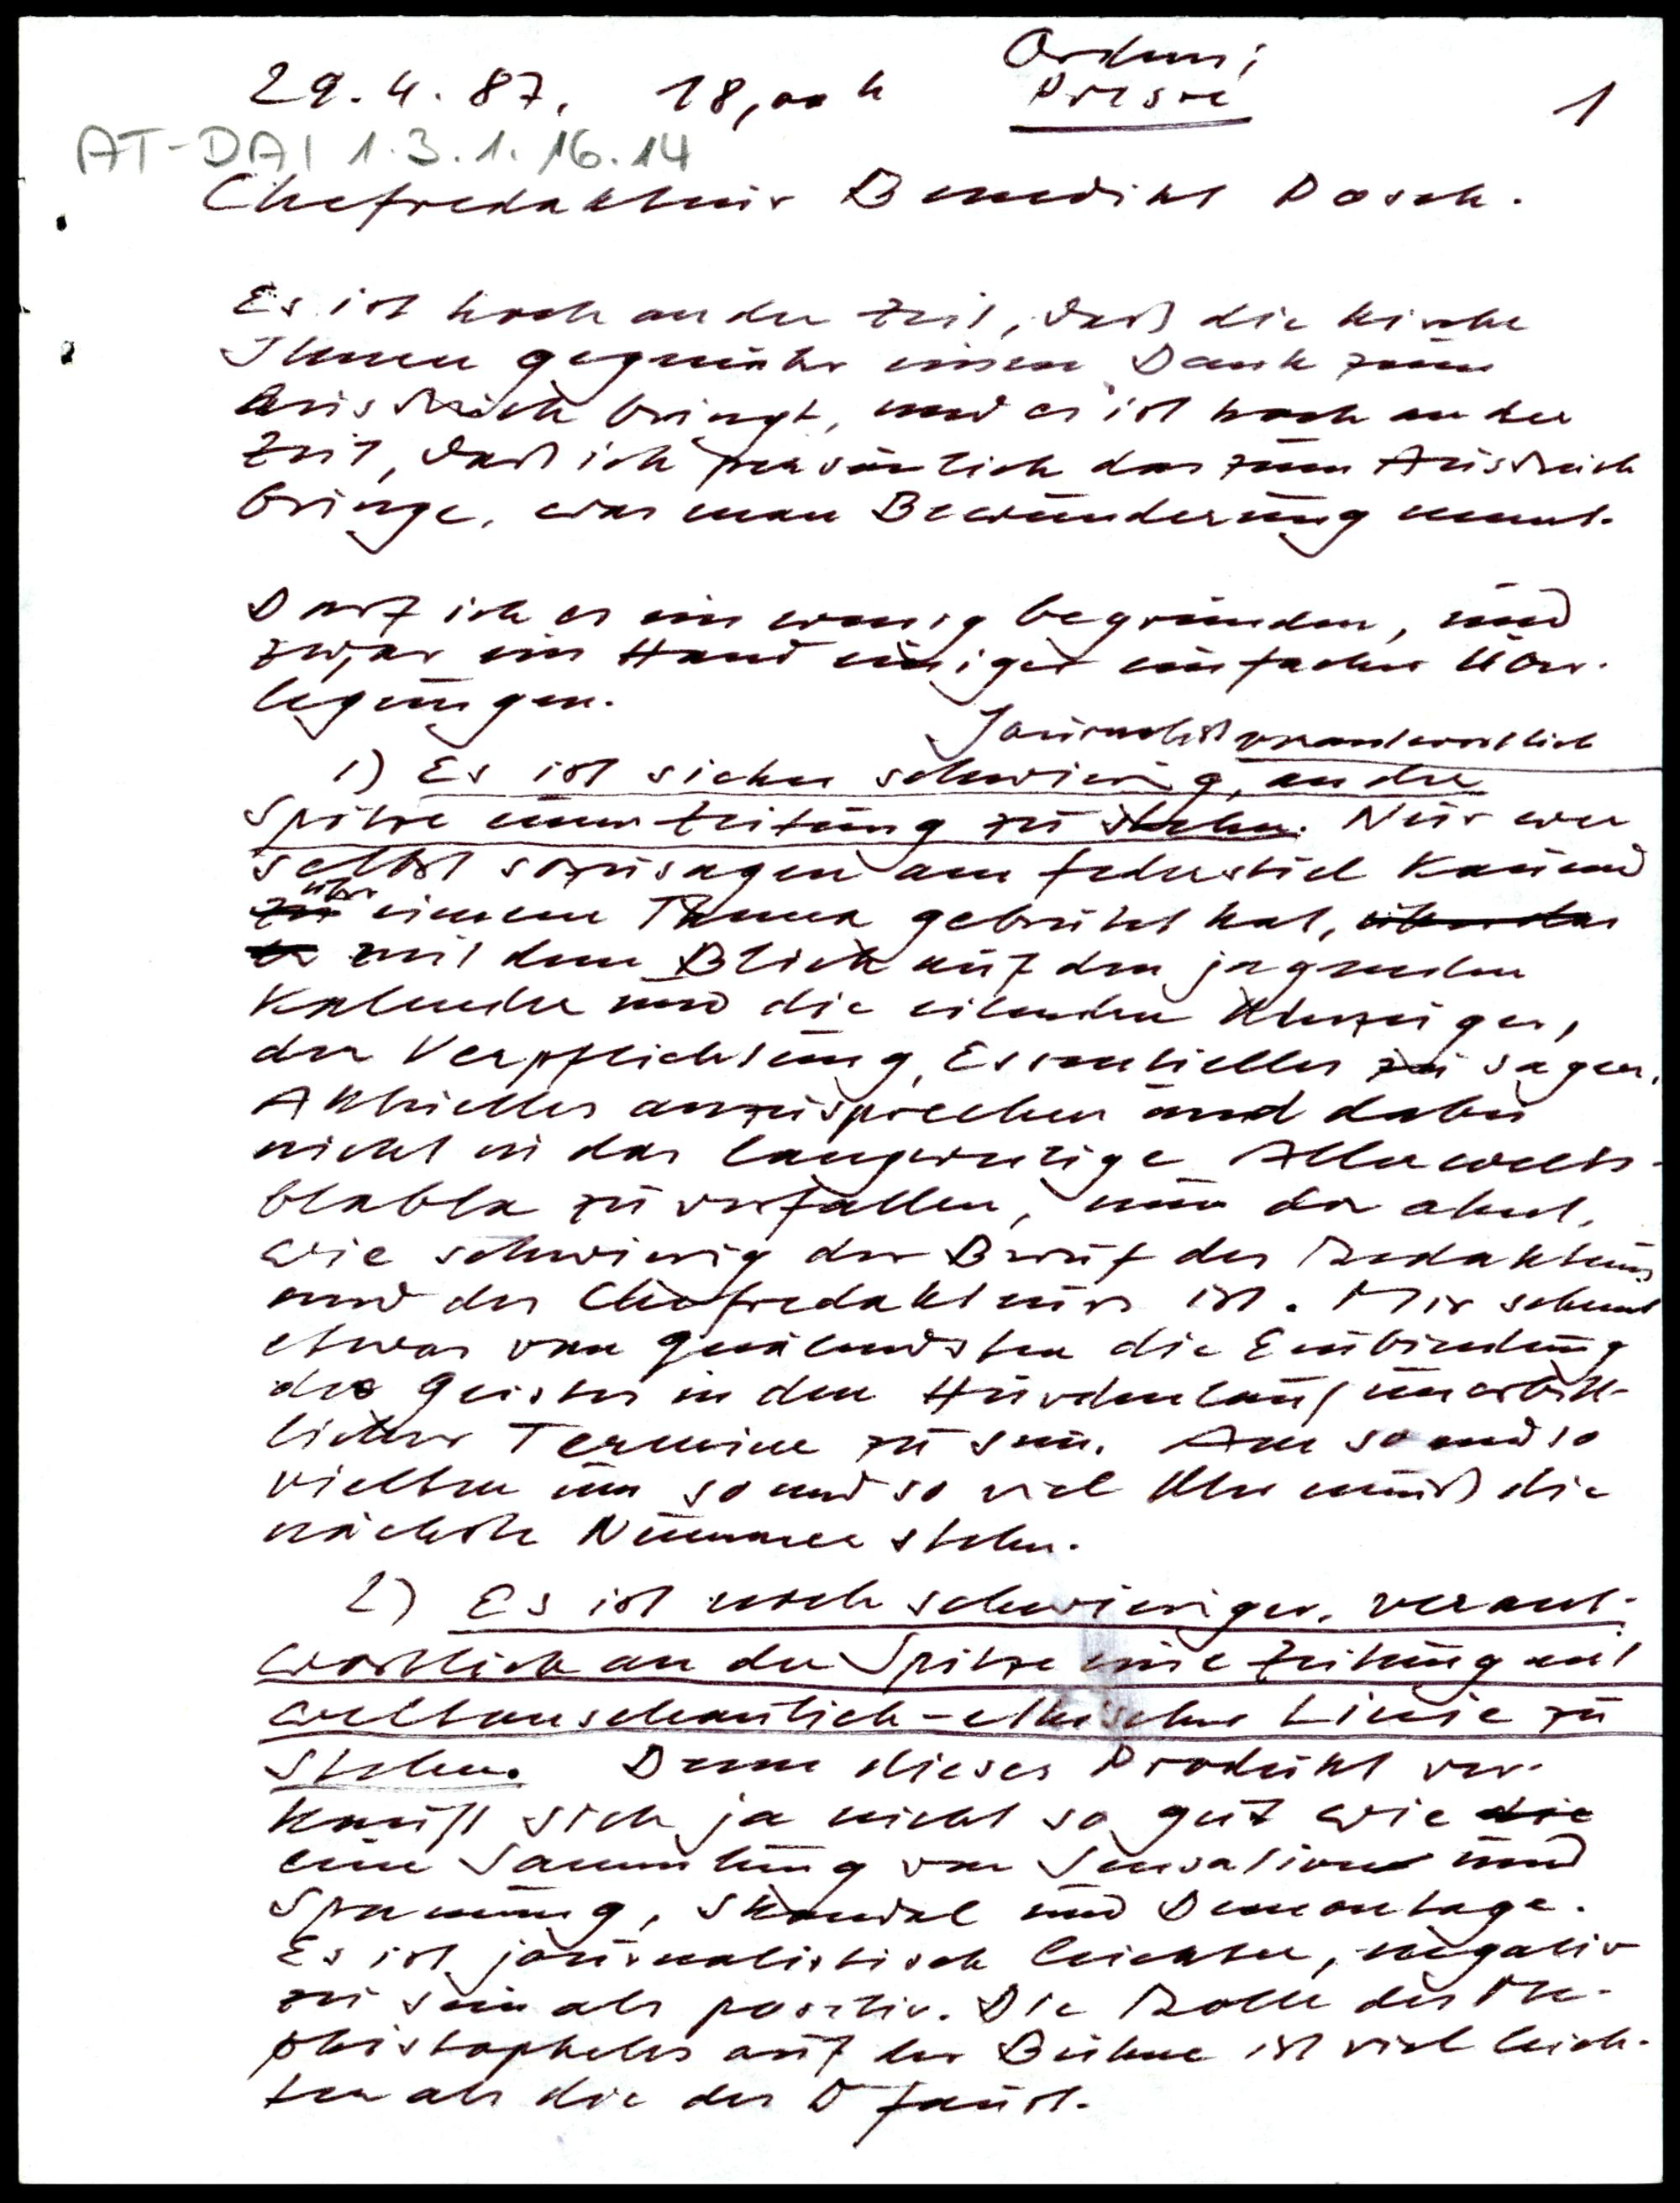 Ordens;
29.4.87. 18,00 h Presse 1
AT-DAI 1.3.1.16.14
Chefredakteur Benedikt Posch.
Es ist hoch an der Zeit, daß die Kirche
Ihnen gegenüber einen Dank zum
Ausdruck bringt, und es ist hoch an der
Zeit, daß ich persönlich das zum Ausdruck
bringe, was man Bewunderung nennt.
Darf ich es ein wenig begründen, und
zwar an Hand einiger einfacher Über-
legungen.
Journalist verantwortlich
1) Es ist sicher schwierig, an der
Spitze einer Zeitung zu stehen. Nur wer
selbst sozusagen am Federstiel kauend
zu über einem Thema gebrütet hat, über das
mit dem Blick auf den jagenden
Kalender und die eilenden Uhrzeiger,
der Verpflichtung, Essentielles zu sagen,
Aktuelles anzusprechen und dabei
nicht in das langweilige Allerwelts-
blabla zu verfallen, nur der ahnt,
wie schwierig der Beruf des Redakteurs
und des Chefredakteurs ist. Mir scheint
etwas vom Quälendsten die Einbindung
des Geistes in den Hürdenlauf unerbitt-
licher Termine zu sein. Am so und so
vielten um so und so viel Uhr muß die
nächste Nummer stehen.
2) Es ist noch schwieriger, verant-
wortlich an der Spitze eine Zeitung mit
weltanschaulich-ethischer Linie zu
stehen. Denn dieses Produkt ver-
kauft sich ja nicht so gut wie die
eine Sammlung von Sensation und
Spannung, Skandal und Demontage.
Es ist journalistisch leichter, negativ
zu sein als positiv. Die Rolle des Me-
phistopheles auf der Bühne ist viel leich-
ter als die des D Faust.